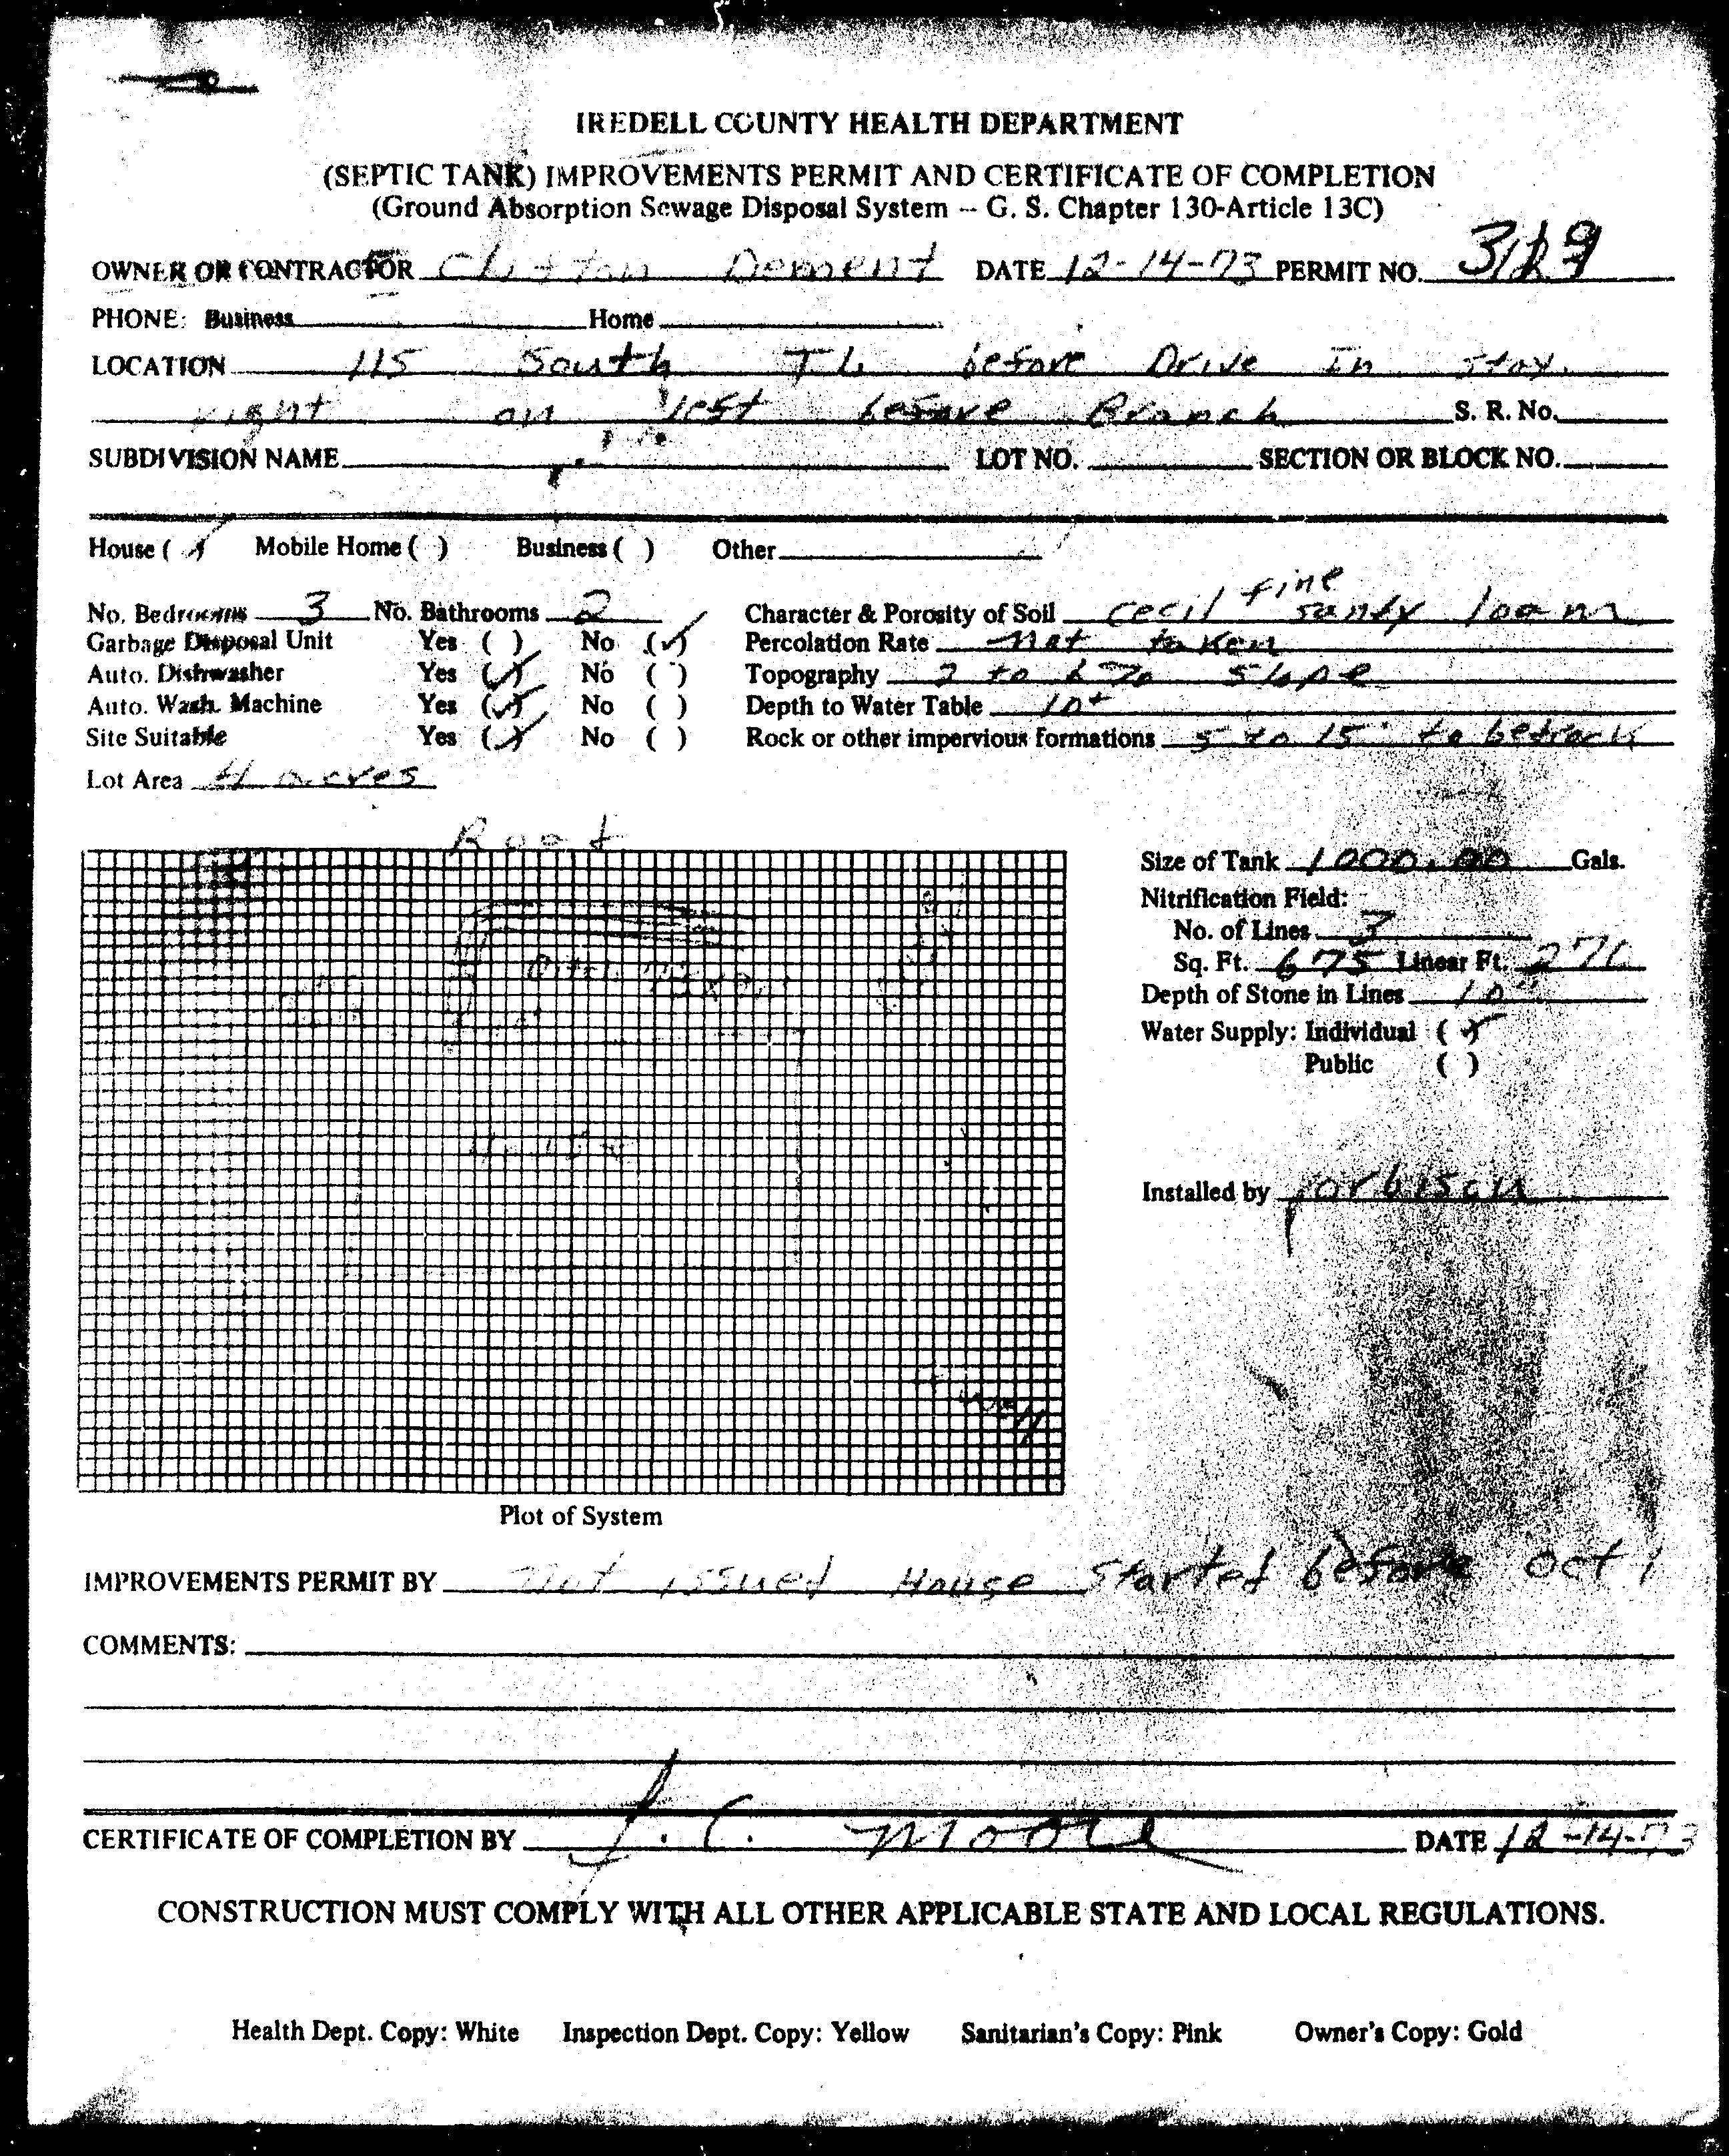 IREDELL COUNTY HEALTH DEPARTMENT
(SEPTIC TANK) IMPROVEMENTS PERMIT AND CERTIFICATE OF COMPLETION
(Ground Absorption Sewage Disposal System -- G. S. Chapter 130-Article 13C)
OWNER OR CONTRACTOR Clifton Dement DATE 12-14-73 PERMIT NO.
PHONE: Business Home
LOCATION 115 South TL before Drive In stay
right on left before Branch S. R. No.
SUBDIVISION NAME LOT NO. SECTION OR BLOCK NO.
House (✓) Mobile Home ( ) Business ( ) Other
No. Bedrooms 3 No. Bathrooms 2 Character & Porosity of Soil cecil fine sandy loam
Garbage Disposal Unit Yes ( ) No (✓) Percolation Rate not taken
Auto. Dishwasher Yes (✓) No ( ) Topography 2 to 6% slope
Auto. Wash. Machine Yes (✓) No ( ) Depth to Water Table 10+
Site Suitable Yes (✓) No ( ) Rock or other impervious formations 5 to 15' to bedrock
Lot Area 4 acres
Size of Tank 1000.00 Gals.
Nitrification Field:
No. of Lines 3
Sq. Ft. 675 Linear Ft.
Depth of Stone in Lines 10"
Water Supply: Individual (✓)
Public ( )
Installed by
Plot of System
IMPROVEMENTS PERMIT BY not issued House Started before Oct 1
COMMENTS:
CERTIFICATE OF COMPLETION BY J. C. Moore DATE 12-14-73
CONSTRUCTION MUST COMPLY WITH ALL OTHER APPLICABLE STATE AND LOCAL REGULATIONS.
Health Dept. Copy: White Inspection Dept. Copy: Yellow Sanitarian's Copy: Pink Owner's Copy: Gold